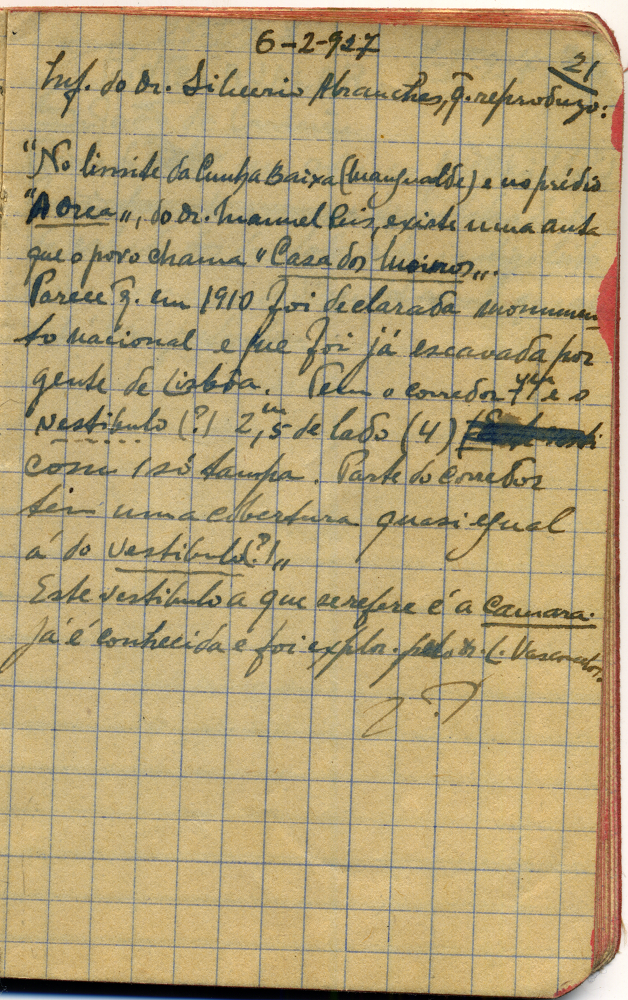 6-2-927
21
Inf. do Dr. Silverio Abranches, q̃. reproduzo:
"No limite da Cunha Baixa (Mangualde) e no prédio
"A Orca", do Dr. Manuel Pais, existe uma anta
que o povo chama "Casa dos Mouros".
Parece q̃. em 1910 foi declarada monumen-
to nacional e que foi já escavada por
gente de Lisboa. Tem o corredor 7m e o
vestibulo (?) 2,m5 de lado (4)
com 1 só tampa. Parte do corredor
tem uma cobertura quasi egual
á do vestibulo (?)"
Este vestibulo a que se refere é a camara.
Já é conhecida e foi explor. pelo Dr. L. Vasconcelos.